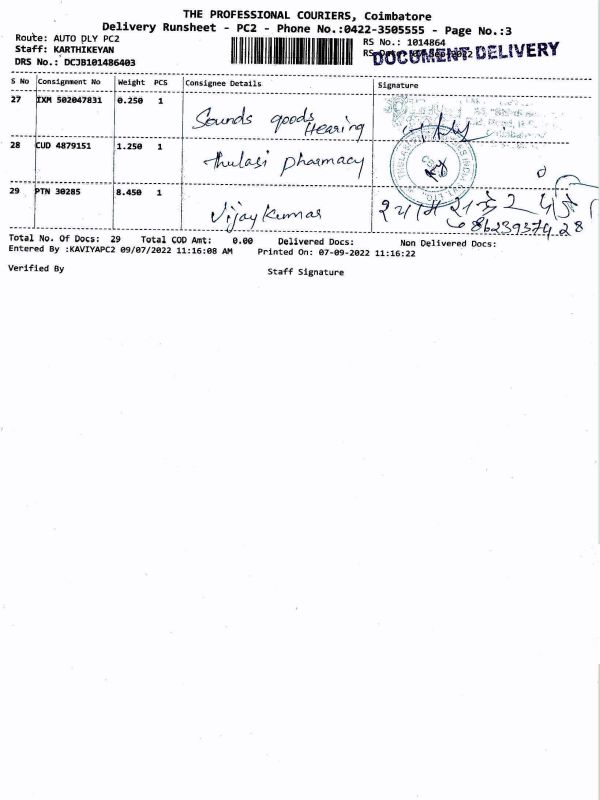 THE PROFESSIONAL COURIERS, Coimbatore
Delivery Runsheet - PC2 - Phone No.:0422-3505555 - Page No.:3
Route: AUTO DLY PC2
RS No.: 1014864
Staff: KARTHIKEYAN
DOCUMENT DELIVERY
DRS No.: DCJB101486403
S No Consignment No Weight PCS Consignee Details Signature
27 IXM 502047831 0.250 1 Sounds goods Hearing
28 CUD 4879151 1.250 1 Thulasi Pharmacy
29 PTN 30285 8.450 1 Vijay Kumar
Total No. Of Docs: 29 Total COD Amt: 0.00 Delivered Docs: Non Delivered Docs:
Entered By :KAVIYAPC2 09/07/2022 11:16:08 AM Printed On: 07-09-2022 11:16:22
Verified By Staff Signature